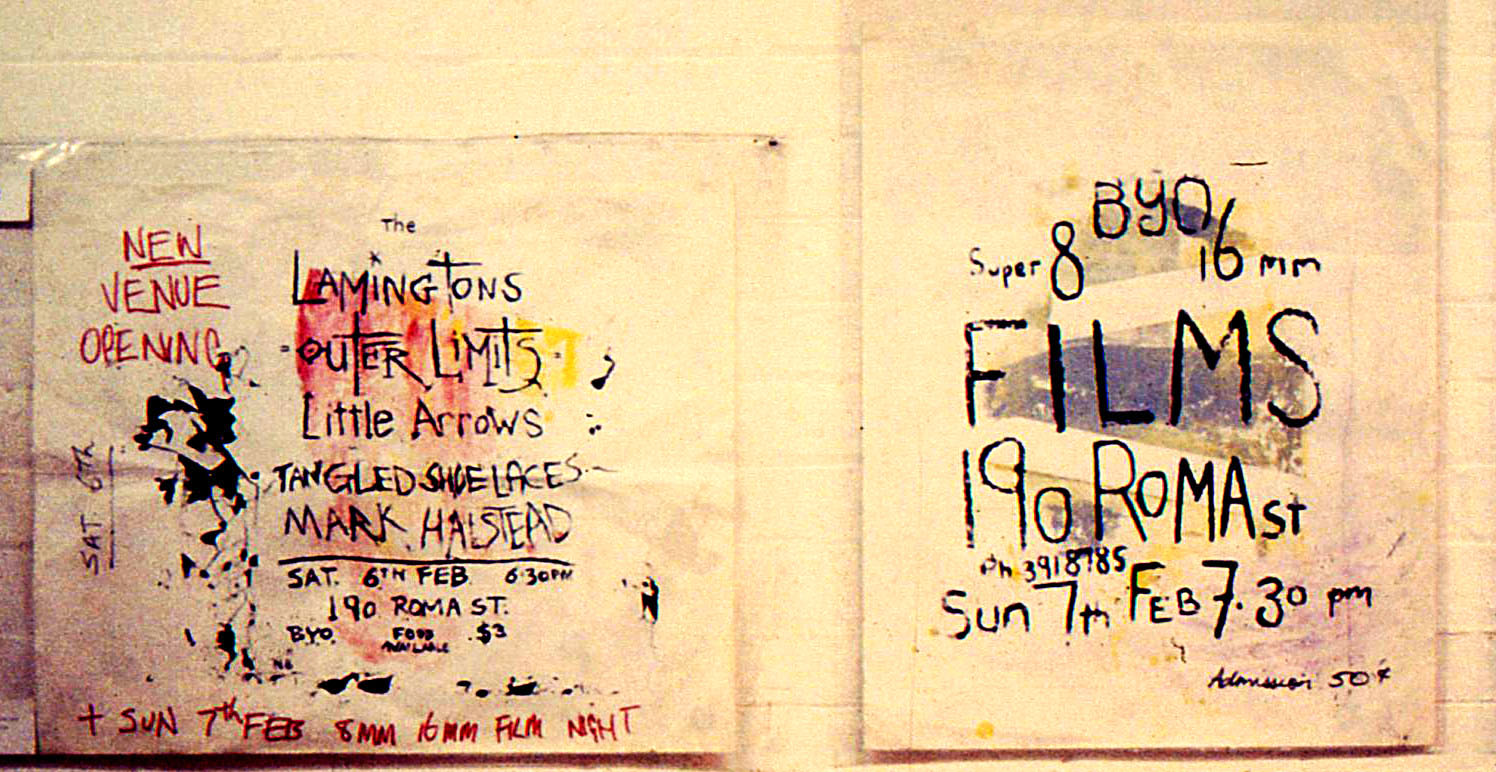 NEW
VENUE
OPENING
SAT 6TH
The
LAMINGTONS
OUTER LIMITS
Little Arrows
TANGLED SHOELACES
MARK HALSTEAD
SAT. 6TH FEB 6.30PM
190 ROMA ST.
BYO. FOOD AVAILABLE $3
+ SUN 7th FEB 8MM 16MM FILM NIGHT
BYO
Super 8 16 mm
FILMS
190 ROMA St
Ph 3918785
Sun 7th FEB 7.30 pm
Admission 50¢